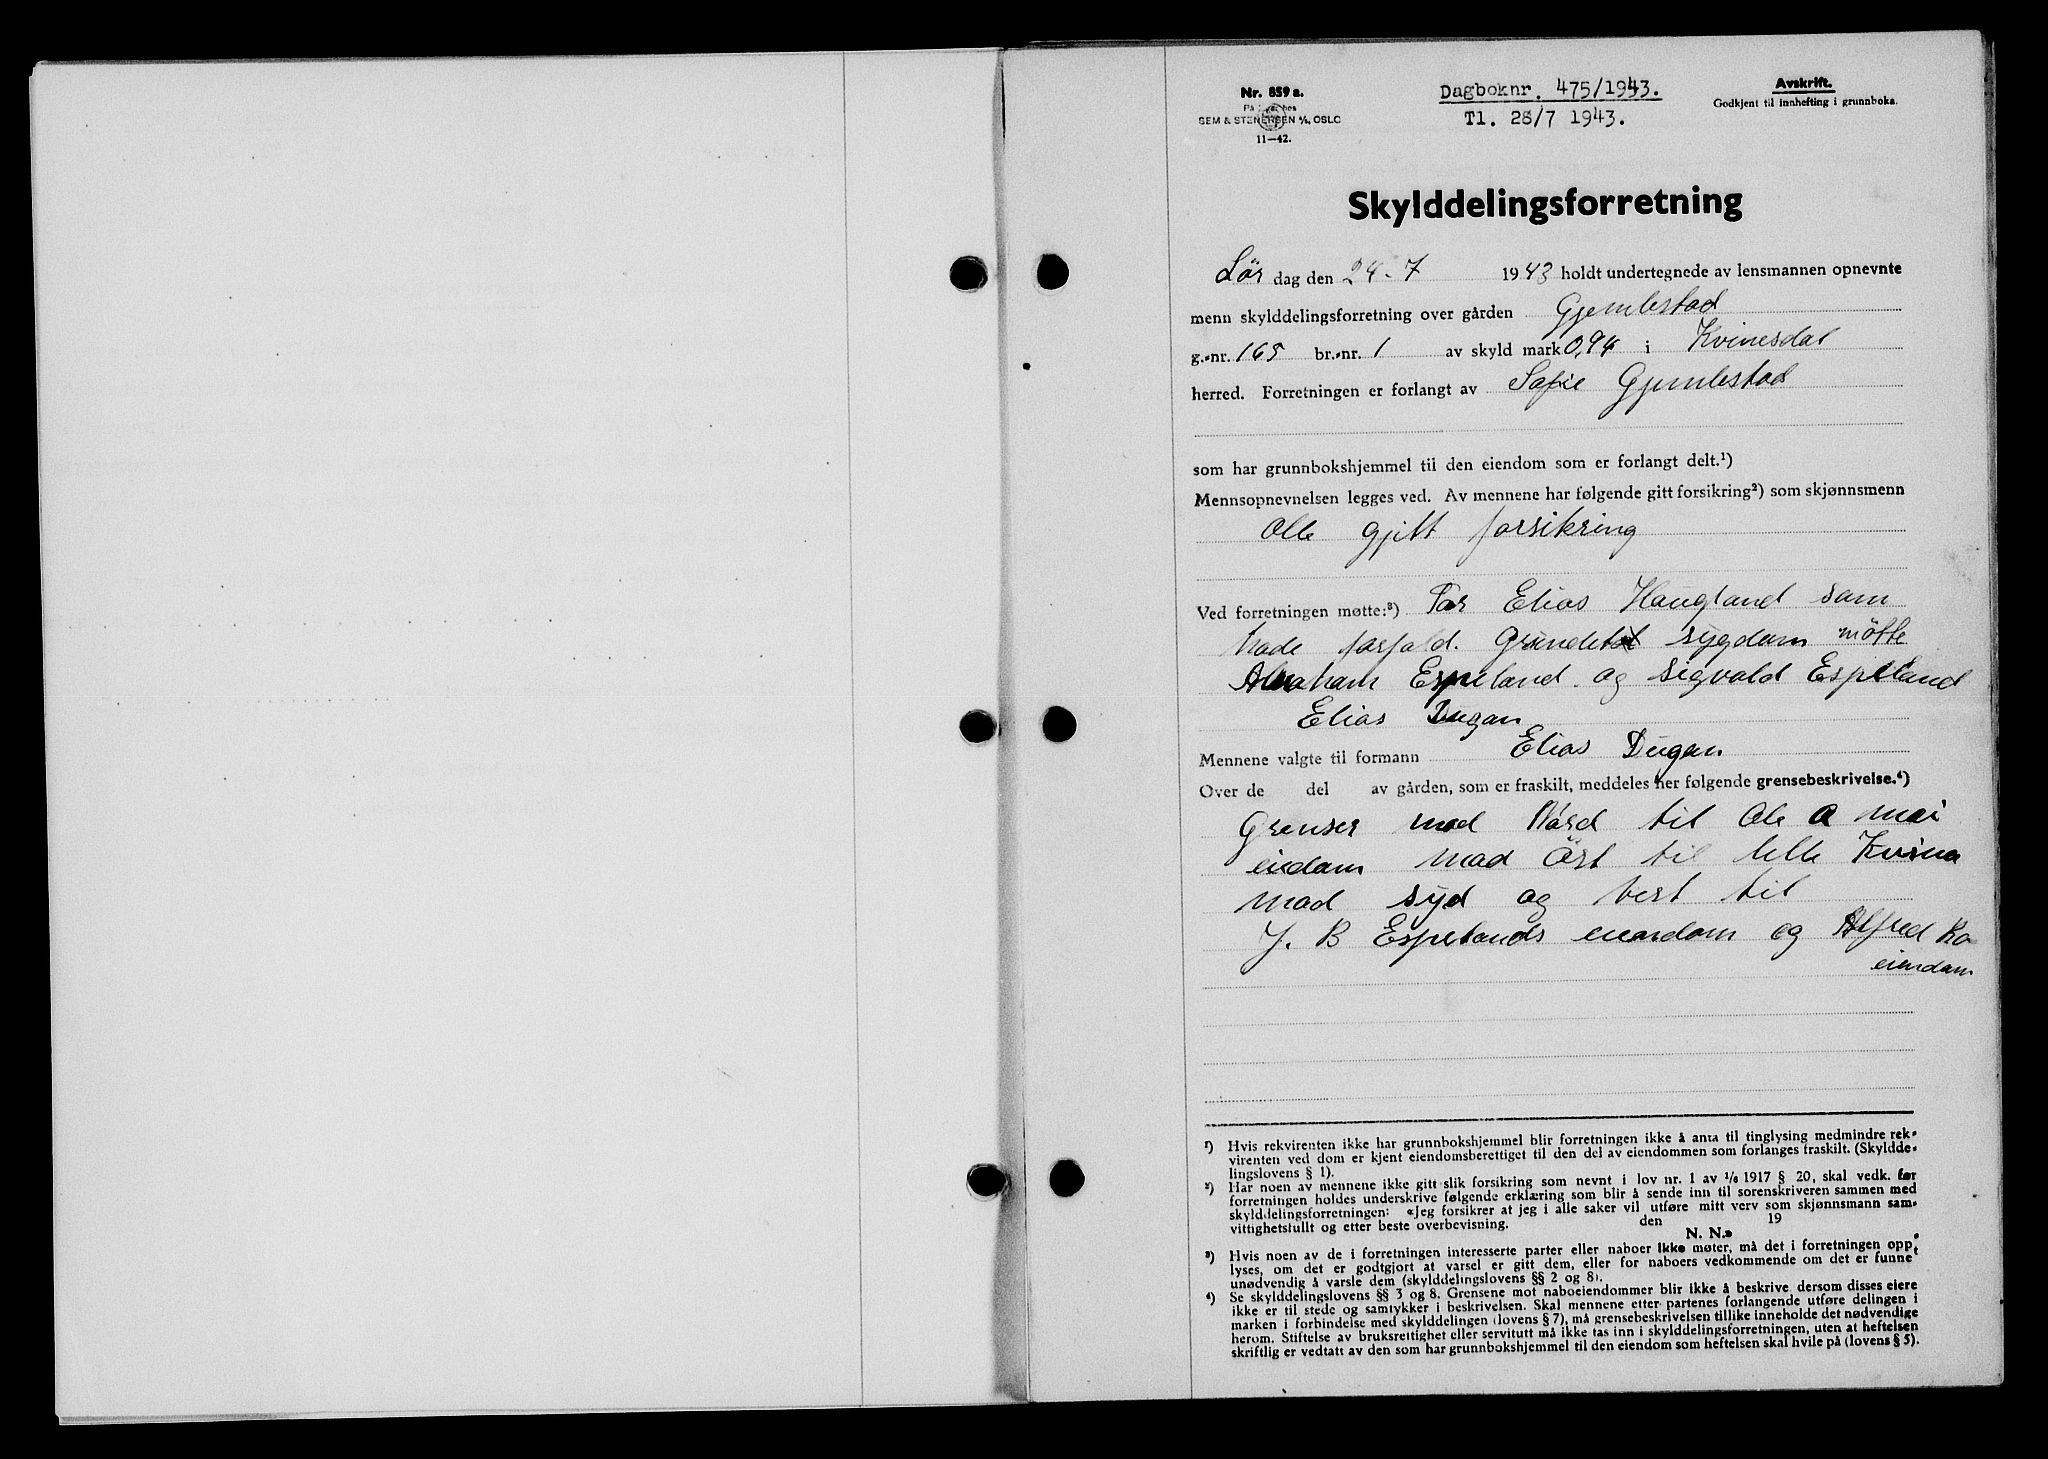 Nr. 859 a.
SEM & STENERSEN A/S, OSLO
11—42.
Dagboknr. 475/1943.
Tl. 28/7 1943.
Avskrift.
Godkjent til innhefting i grunnboka.
Skylddelingsforretning
Lör dag den 24 - 7 1943 holdt undertegnede av lensmannen opnevnte
menn skylddelingsforretning over gården Gjemlestad
g.-nr. 165 br.-nr. 1 av skyld mark 0,94 i Kvinesdal
herred. Forretningen er forlangt av Sofie Gjemlestad
som har grunnbokshjemmel til den eiendom som er forlangt delt.¹)
Mennsopnevnelsen legges ved. Av mennene har følgende gitt forsikring²) som skjønnsmenn
Alle gjitt forsikring
Ved forretningen møtte:³) For Elias Haugland som
hade forfald. Grundet sygdom mötte
Abraham Espeland og Sigvald Espeland
Elias Dugan
Mennene valgte til formann Elias Dugan
Over de del av gården, som er fraskilt, meddeles her følgende grensebeskrivelse.⁴)
Grenser mod Nord til Ole A moi
eiendom mod Öst til lille Kvina
mod syd og vest til
J. B Espelands eiendom og Alfred Ro
eiendom
¹) Hvis rekvirenten ikke har grunnbokshjemmel blir forretningen ikke å anta til tinglysing medmindre rek-
virenten ved dom er kjent eiendomsberettiget til den del av eiendommen som forlanges fraskilt. (Skyldde-
lingslovens § 1).
²) Har noen av mennene ikke gitt slik forsikring som nevnt i lov nr. 1 av 1/6 1917 § 20, skal vedk. før
forretningen holdes underskrive følgende erklæring som blir å sende inn til sorenskriveren sammen med
skylddelingsforretningen: «Jeg forsikrer at jeg i alle saker vil utføre mitt verv som skjønnsmann sam-
vittighetsfullt og etter beste overbevisning. den 19
N. N.»
³) Hvis noen av de i forretningen interesserte parter eller naboer ikke møter, må det i forretningen opp-
lyses, om det er godtgjort at varsel er gitt dem, eller for naboers vedkommende om det er funnet
unødvendig å varsle dem (skylddelingslovens §§ 2 og 8).
⁴) Se skylddelingslovens §§ 3 og 8. Grensene mot naboeiendommer blir ikke å beskrive dersom disses eiere
ikke er til stede og samtykker i beskrivelsen. Skal mennene etter partenes forlangende utføre delingen i
marken i forbindelse med skylddelingen (lovens § 7), må grensebeskrivelsen tillike inneholde det nødvendige
herom. Stiftelse av bruksrettighet eller servitutt må ikke tas inn i skylddelingsforretningen, uten at heftelsen
skriftlig er vedtatt av den som har grunnbokshjemmel til den eiendom som heftelsen skal hvile på (lovens § 5).